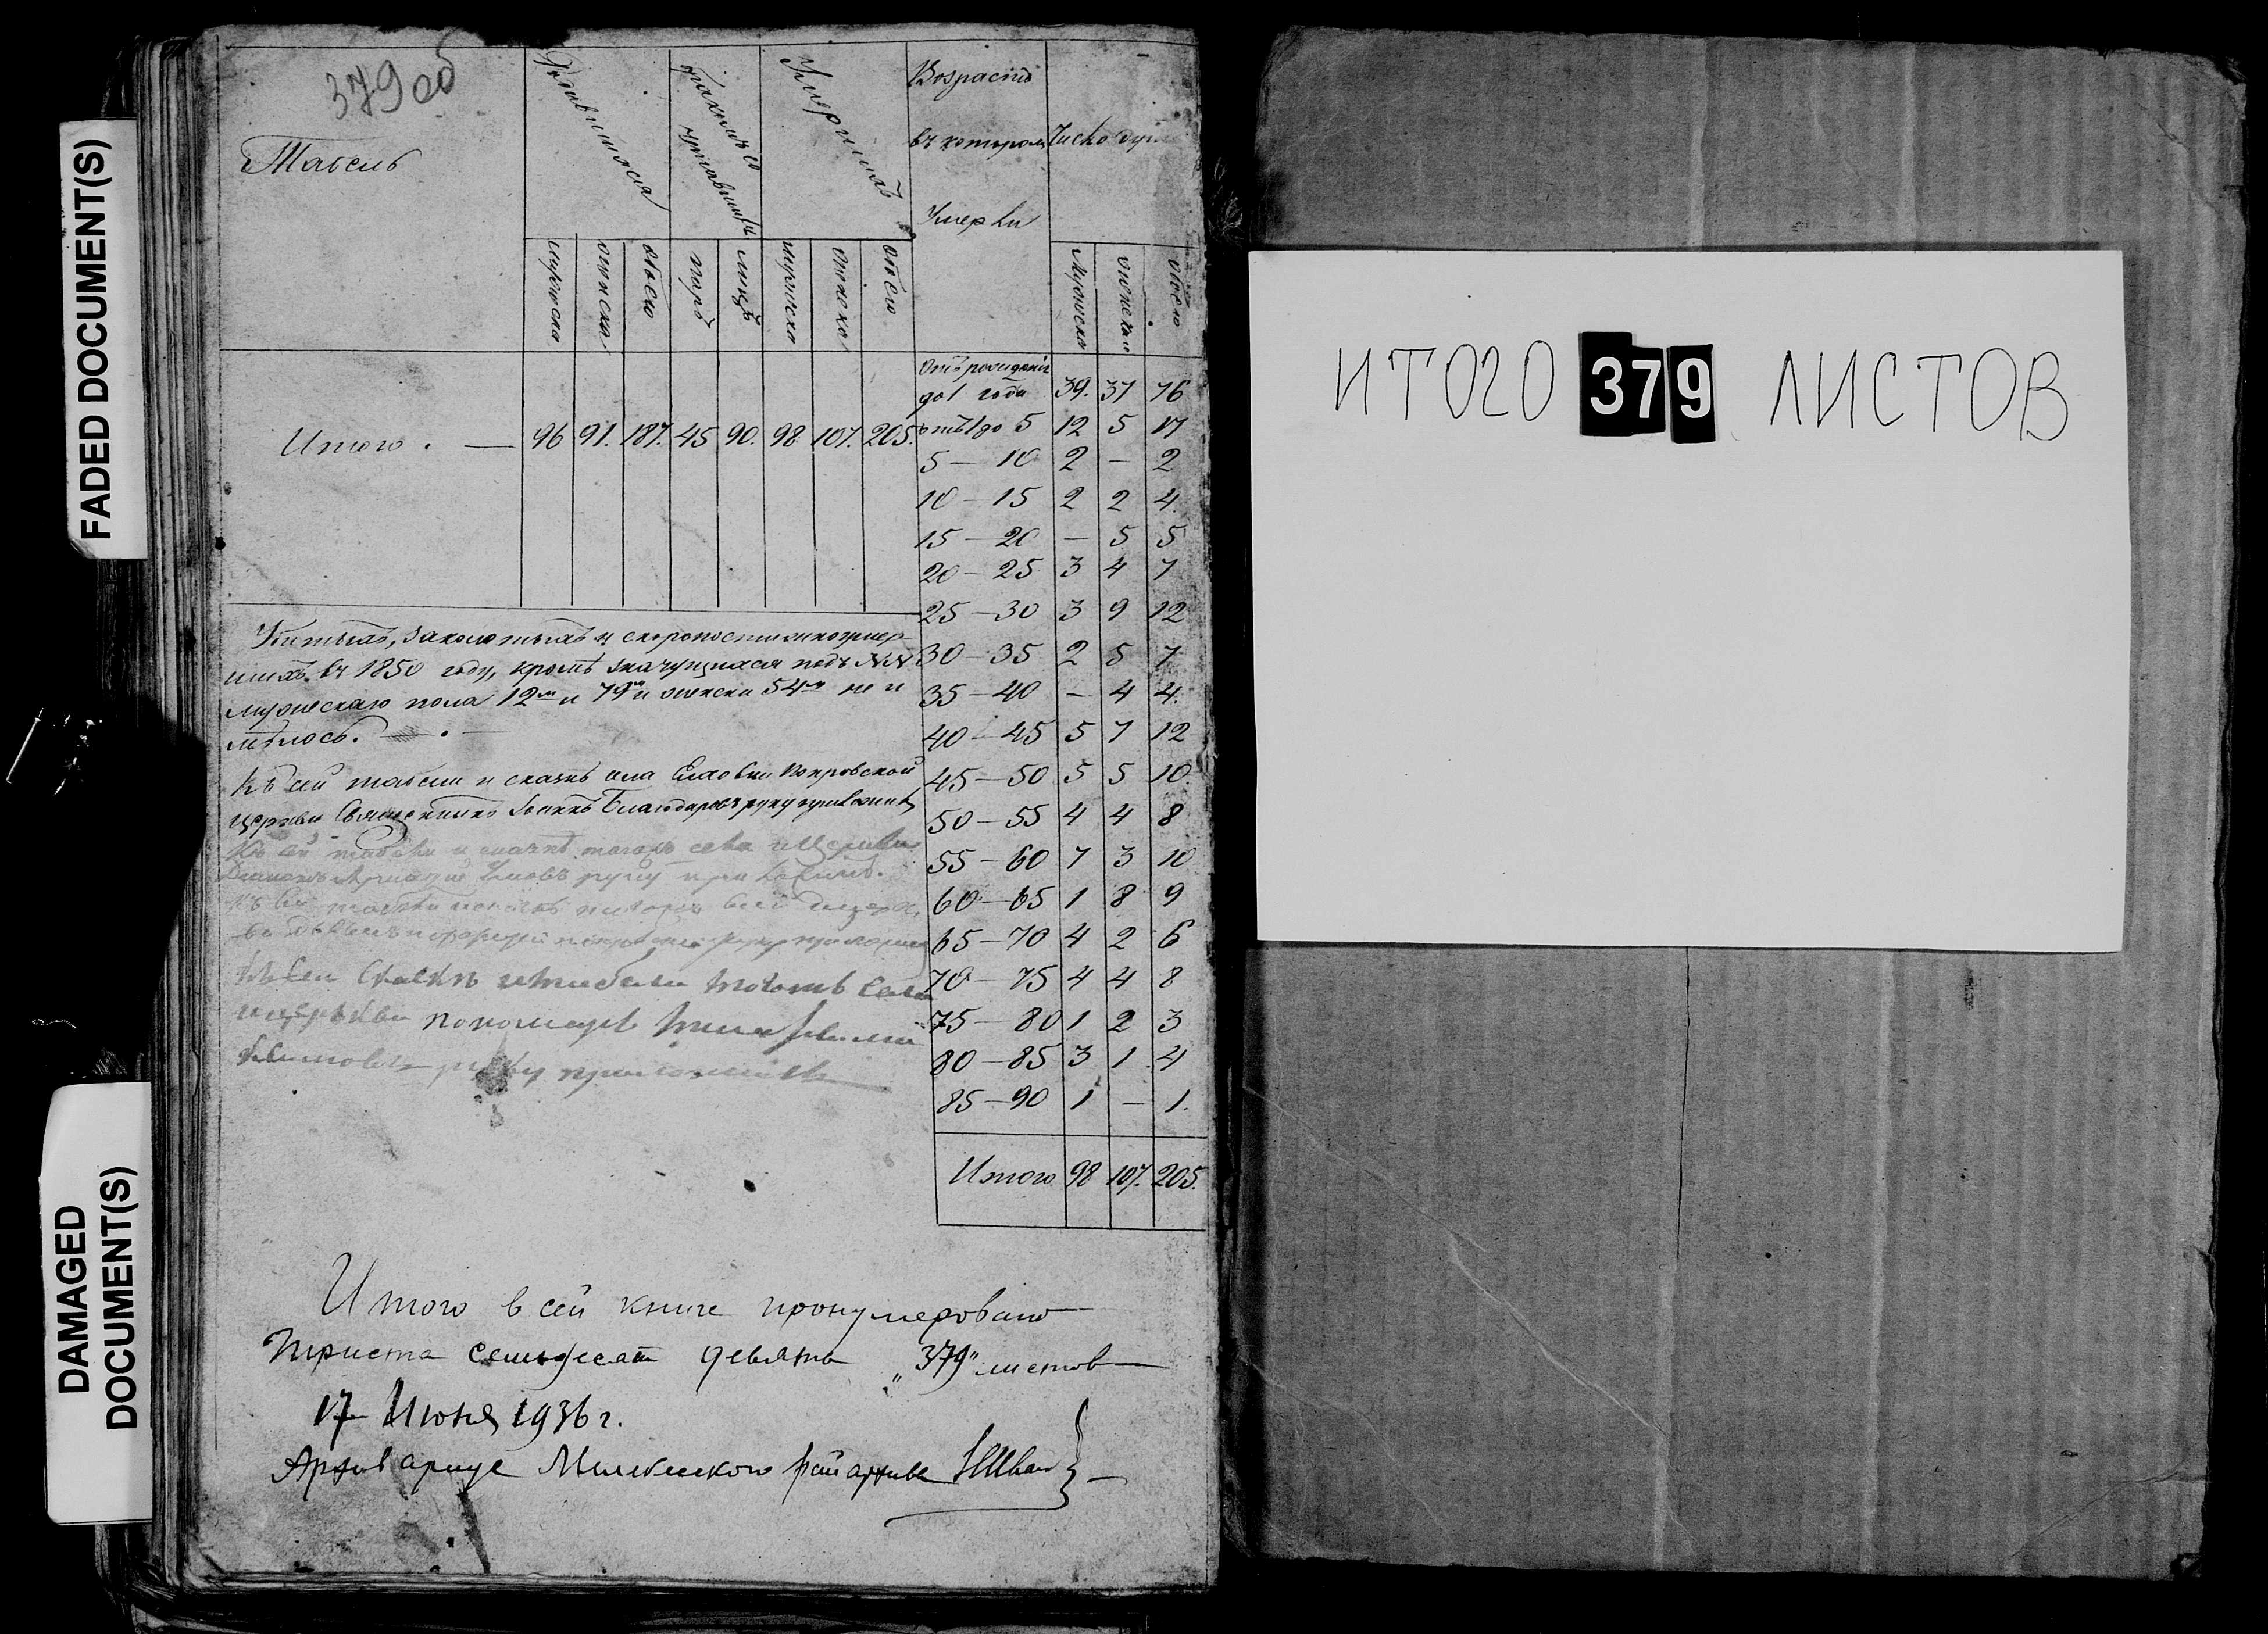 FADED DOCUMENT(S)
DAMAGED
DOCUMENT(S)
379 об
Табель
Родившихся
бракомъ со
четавшихся
Умершихъ
Возрастъ
въ которомъ
Умерли
Число душъ
мужеска
женска
обоего
паръ
лицъ
мужеска
женска
обоего
мужеска
женска
обоего
Итого . — 96 91. 187. 45 90. 98 107. 205.
отъ рожденія
до 1 года 39. 37 76
отъ 1 до 5 12 5 17
5 — 10 2 — 2
10 — 15 2 2 4.
15 — 20 — 5 5
20 — 25 3 4 7
25 — 30 3 9 12
30 — 35 2 5 7
35 — 40 — 4 4.
40 — 45 5 7 12
45 — 50 5 5 10.
50 — 55 4 4 8
55 — 60 7 3 10
60 — 65 1 8 9
65 — 70 4 2 6
70 — 75 4 4 8
75 — 80 1 2 3
80 — 85 3 1 4
85 — 90 1 — 1.
Итого 98 107. 205.
Убитыхъ, заколотыхъ и скоропостижно умер-
шихъ въ 1850 году, кромѣ значущихся подъ №№
мужескаго пола 12м и 79м и женска 54м не и
мѣлось.
Къ сей табели и сказкѣ села Покровской
церкви Священникъ Іоаннъ Благодаровъ руку приложилъ
Къ сей табели и сказкѣ тогожъ села и Церкви
Діаконъ руку приложилъ.
Къ сей
Къ сей сказкѣ и табели тогожъ села
и церкви пономарь
руку приложилъ
Итого в сей книге пронумеровано
Триста семьдесят девять „379" листов
17 Июня 1936 г.
Архивариус Мелекесского райархива
ИТОГО 379 ЛИСТОВ